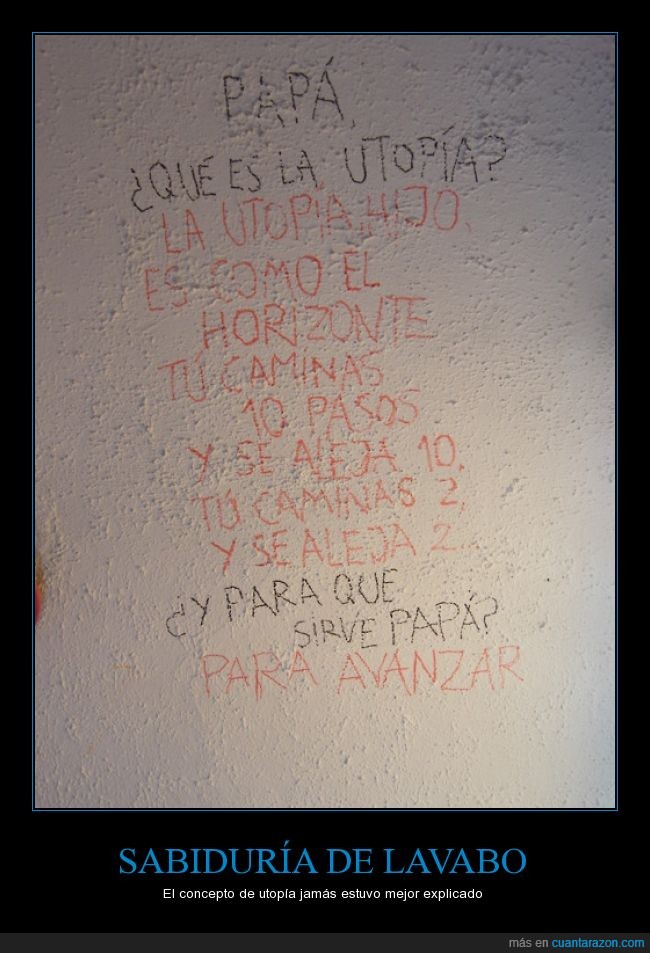 PAPÁ,
¿QUÉ ES LA UTOPÍA?
LA UTOPÍA, HIJO,
ES COMO EL
HORIZONTE
TÚ CAMINAS
10 PASOS
Y SE ALEJA 10,
TÚ CAMINAS 2,
Y SE ALEJA 2...
¿Y PARA QUE
SIRVE PAPÁ?
PARA AVANZAR
SABIDURÍA DE LAVABO
El concepto de utopía jamás estuvo mejor explicado
más en cuantarazon.com